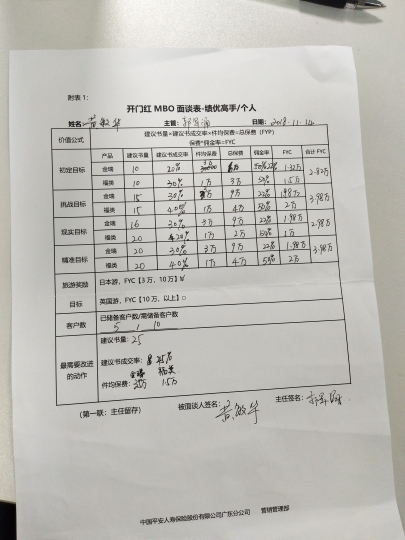 附表 1：
开门红 MBO 面谈表-绩优高手/个人
姓名: 黄敏华 主管: 日期: 2018.11.14
价值公式 建议书量×建议书成交率×件均保费=总保费 (FYP)
保费*佣金率=FYC
产品 建议书量 建议书成交率 件均保费 总保费 佣金率 FYC 合计 FYC
初定目标 金瑞 10 20% 3万 6万 22% 1.32万 2.82万
福类 10 30% 1万 3万 50% 1.5万
挑战目标 金瑞 15 30% 9万 22% 1.98万 3.98万
福类 15 40% 1万 4万 50% 2万
现实目标 金瑞 16 30% 3万 9万 22% 1.98万 2.98万
福类 20 20% 1万 2万 50% 1万
瞄准目标 金瑞 20 30% 3万 9万 22% 1.98万 3.98万
福类 20 40% 1万 4万 50% 2万
旅游奖励目标 日本游，FYC【3 万，10 万】
英国游，FYC【10 万，以上】□
客户数 已储备客户数/需储备客户数
5 / 10
最需要改进的动作 建议书量: 25
建议书成交率: 25%
金瑞 福类
件均保费: 3万 1.5万
(第一联：主任留存) 被面谈人签名: 黄敏华 主任签名:
中国平安人寿保险股份有限公司广东分公司 营销管理部